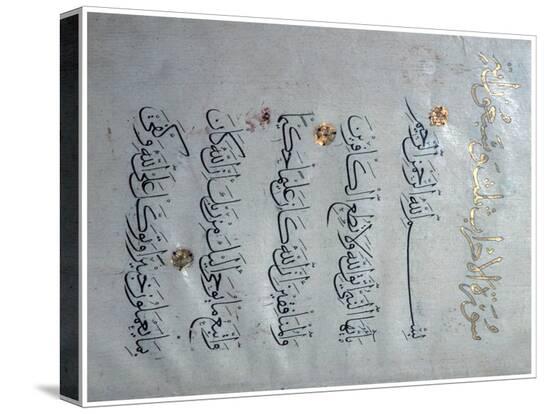 سورة الاحزاب ثلث وسبعون اية
بسم الله الرحمن الرحيم
يٰأيها النبي اتق الله ولا تطع الكافرين
والمنافقين ان الله كان عليما حكيما
واتبع ما يوحى اليك من ربك ان الله كان
بما تعملون خبيرا وتوكل على الله وكفى